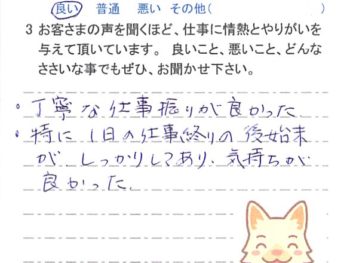 良い 普通 悪い その他( )
3 お客さまの声を聞くほど、仕事に情熱とやりがいを
与えて頂いています。 良いこと、悪いこと、どんな
ささいな事でもぜひ、お聞かせ下さい。
・丁寧な仕事振りが良かった
・特に1日の仕事終りの後始末
が、しっかりしてあり、気持ちが
良かった。